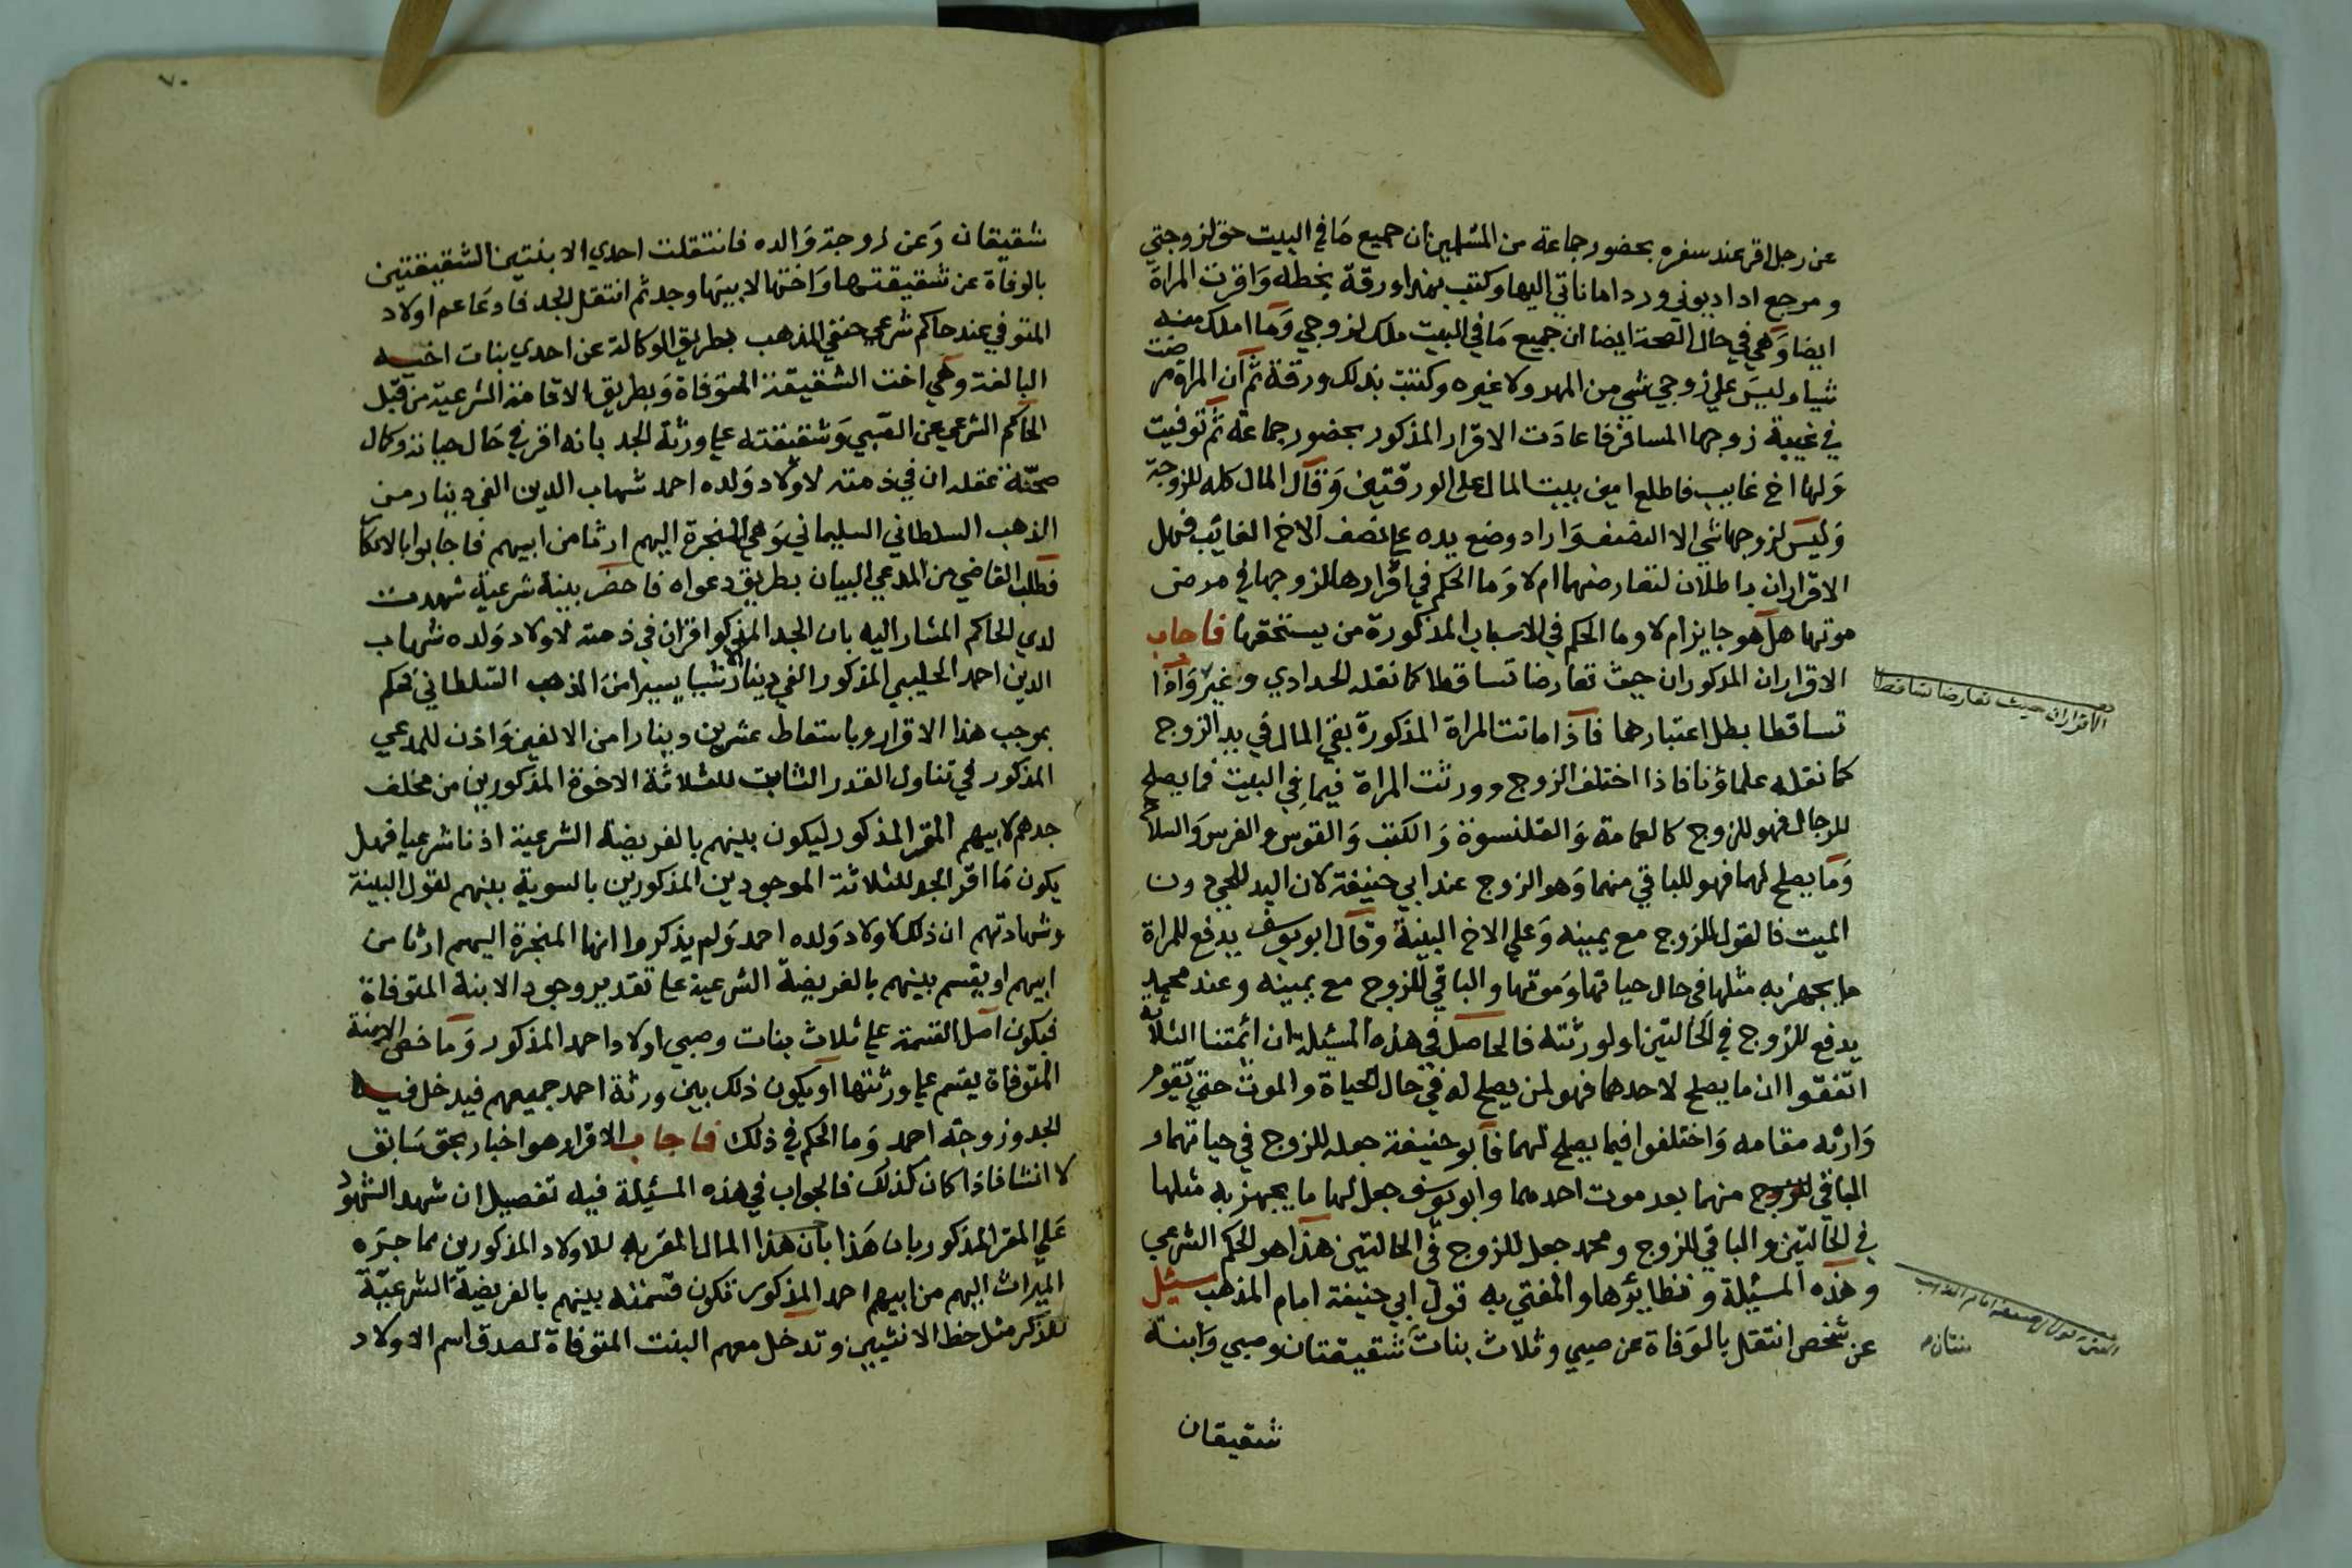 عن رجل اقر عند سفره بحضور جماعة من المسلمين ان جميع ما في البيت حق لزوجتي
ومرجع ادا ديوني ورد اماناتي اليها وكتب بهذا ورقة بخطه واقرت المراة
ايضا وهي في حال الصحة ايضا ان جميع ما في البيت ملك لزوجي وما املك منه
شيا وليس علي زوجي شي من المهر ولا غيره وكتبت بذلك ورقة ثم ان المراة مرضت
في غيبة زوجها المسافر فاعادت الاقرار المذكور بحضور جماعة ثم توفيت
ولها اخ غايب فاطلع امين بيت المال على الورقتين وقال المال كله للزوجة
وليس لزوجها شي الا النصف واراد وضع يده علي نصف الاخ الغائب فهل
الاقراران باطلان لتعارضهما ام لا وما الحكم في اقرارها لزوجها في مرض
موتها هل هو جايز ام لا وما الحكم في الاسباب المذكورة من يستحقها فاجاب
الاقراران المذكوران حيث تعارضا تساقطا كما نقله الحدادي وغيره واذا
تساقطا بطل اعتبارهما فاذا ماتت المراة المذكورة بقي المال في يد الزوج
كما نقله علماؤنا فاذا اختلف الزوج وورثت المراة فيما في البيت فما يصلح
للرجال فهو للزوج كالعمامة والقلنسوة والكتب والقوس والفرس والسلاح
وما يصلح لهما فهو للباقي منهما وهو الزوج عند ابي حنيفة لان اليد للحي دون
الميت فالقول للزوج مع يمينه وعلي الاخ البينة وقال ابو يوسف يدفع للمراة
ما يجهز به مثلها في حال حياتها وموتها والباقي للزوج مع يمينه وعند محمد
يدفع للزوج في الحالتين او لورثته فالحاصل في هذه المسئلة ان ائمتنا الثلاثة
اتفقوا ان ما يصلح لاحدهما فهو لمن يصلح له في حال الحياة والموت حتي تقوم
وارثه مقامه واختلفوا فيما يصلح لهما فابو حنيفة جعله للزوج في حياتهما و
الباقي للزوج منهما بعد موت احدهما وابو يوسف جعل لها ما يجهز به مثلها
في الحالتين والباقي للزوج ومحمد جعل للزوج في الحالتين هذا هو الحكم الشرعي
وهذه المسئلة ونظايرها والمفتي به قول ابي حنيفة امام المذهب سئل
عن شخص انتقل بالوفاة عن صبي وثلاث بنات شقيقتان وصبي وابنة
شقيقان
الاقراران حيث تعارضا تساقطا
٧٠
شقيقان وعن زوجة والده فانتقلت احدي الابنتين الشقيقتين
بالوفاة عن شقيقتها واختها لابيها وجد ثم انتقل الجد فادعا عم اولاد
المتوفي عند حاكم شرعي حنفي المذهب بطريق الوكالة عن احدي بنات اخيه
البالغة وهي اخت الشقيقة المتوفاة وبطريق الاقامة الشرعية من قبل
الحاكم الشرعي عن الصبي وشقيقته علي ورثة الجد بانه اقر في حال حياته وكمال
صحة عقله ان في ذمته لاولاد ولده احمد شهاب الدين الفي دينار من
الذهب السلطاني السليماني وهي المنجرة اليهم ارثا من ابيهم فاجابوا بالانكار
فطلب القاضي من المدعي البيان بطريق دعواه فاحضر بينة شرعية شهدت
لدي الحاكم المشار اليه بان الجد المذكور اقر ان في ذمته لاولاد ولده شهاب
الدين احمد الحلبي المذكور الفي دينار الا شيا يسيرا من الذهب السلطاني فحكم
بموجب هذا الاقرار وباسقاط عشرين دينارا من الالفين واذن للمدعي
المذكور في تناول القدر الثابت للثلاثة الاخوة المذكورين من مخلف
جدهم لابيهم المقر المذكور ليكون بينهم بالفريضة الشرعية اذنا شرعيا فهل
يكون ما اقر الجد للثلاثة الموجودين المذكورين بالسوية بينهم لقول البينة
وشهادتهم ان ذلك لاولاد ولده احمد ولم يذكروا انها المنجرة اليهم ارثا من
ابيهم او يقسم بينهم بالفريضة الشرعية علي تقدير وجود الابنة المتوفاة
فيكون اصل القسمة علي ثلاث بنات وصبي اولاد احمد المذكور وما خص الابنة
المتوفاة يقسم علي ورثتها او يكون ذلك بين ورثة احمد جميعهم فيدخل فيها
الجد وزوجة احمد وما الحكم في ذلك فاجاب الاقرار هو اخبار بحق سابق
لا انشا فاذا كان كذلك فالجواب في هذه المسئلة فيه تفصيل ان شهد الشهود
علي المقر المذكور بان هذا بان هذا المال المقر به للاولاد المذكورين مما جره
الميراث اليهم من ابيهم احمد المذكور فتكون قسمته بينهم بالفريضة الشرعية
للذكر مثل حظ الانثيين وتدخل معهم البنت المتوفاة لصدق اسم الاولاد